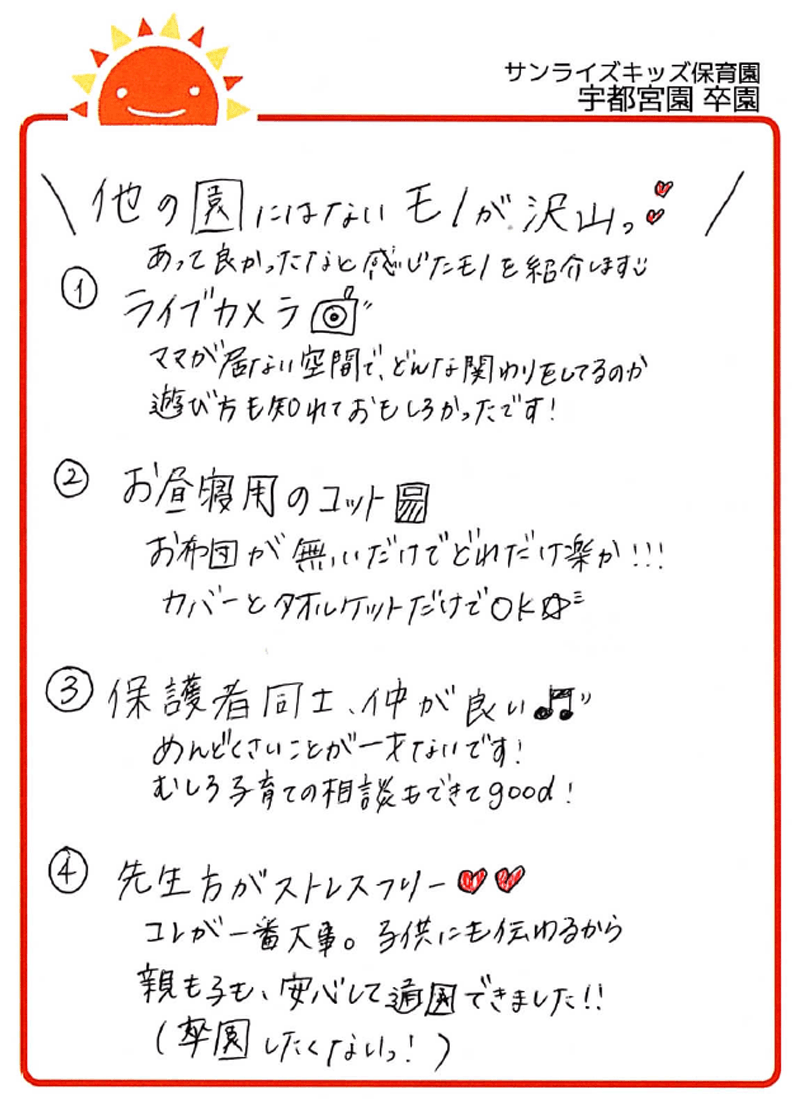 サンライズキッズ保育園
宇都宮園 卒園
\ 他の園にはないモノが沢山っ /
あって良かったなと感じたモノを紹介します
① ライブカメラ
ママが居ない空間で、どんな関わりをしてるのか
遊び方も知れておもしろかったです!
② お昼寝用のコット
お布団が無いだけでどれだけ楽か!!!
カバーとタオルケットだけでOK☆
③ 保護者同士、仲が良い♫
めんどくさいことが一才ないです!
むしろ子育ての相談もできてgood!
④ 先生方がストレスフリー
コレが一番大事。子供にも伝わるから
親も子も、安心して通園できました!!
(卒園したくないっ!)